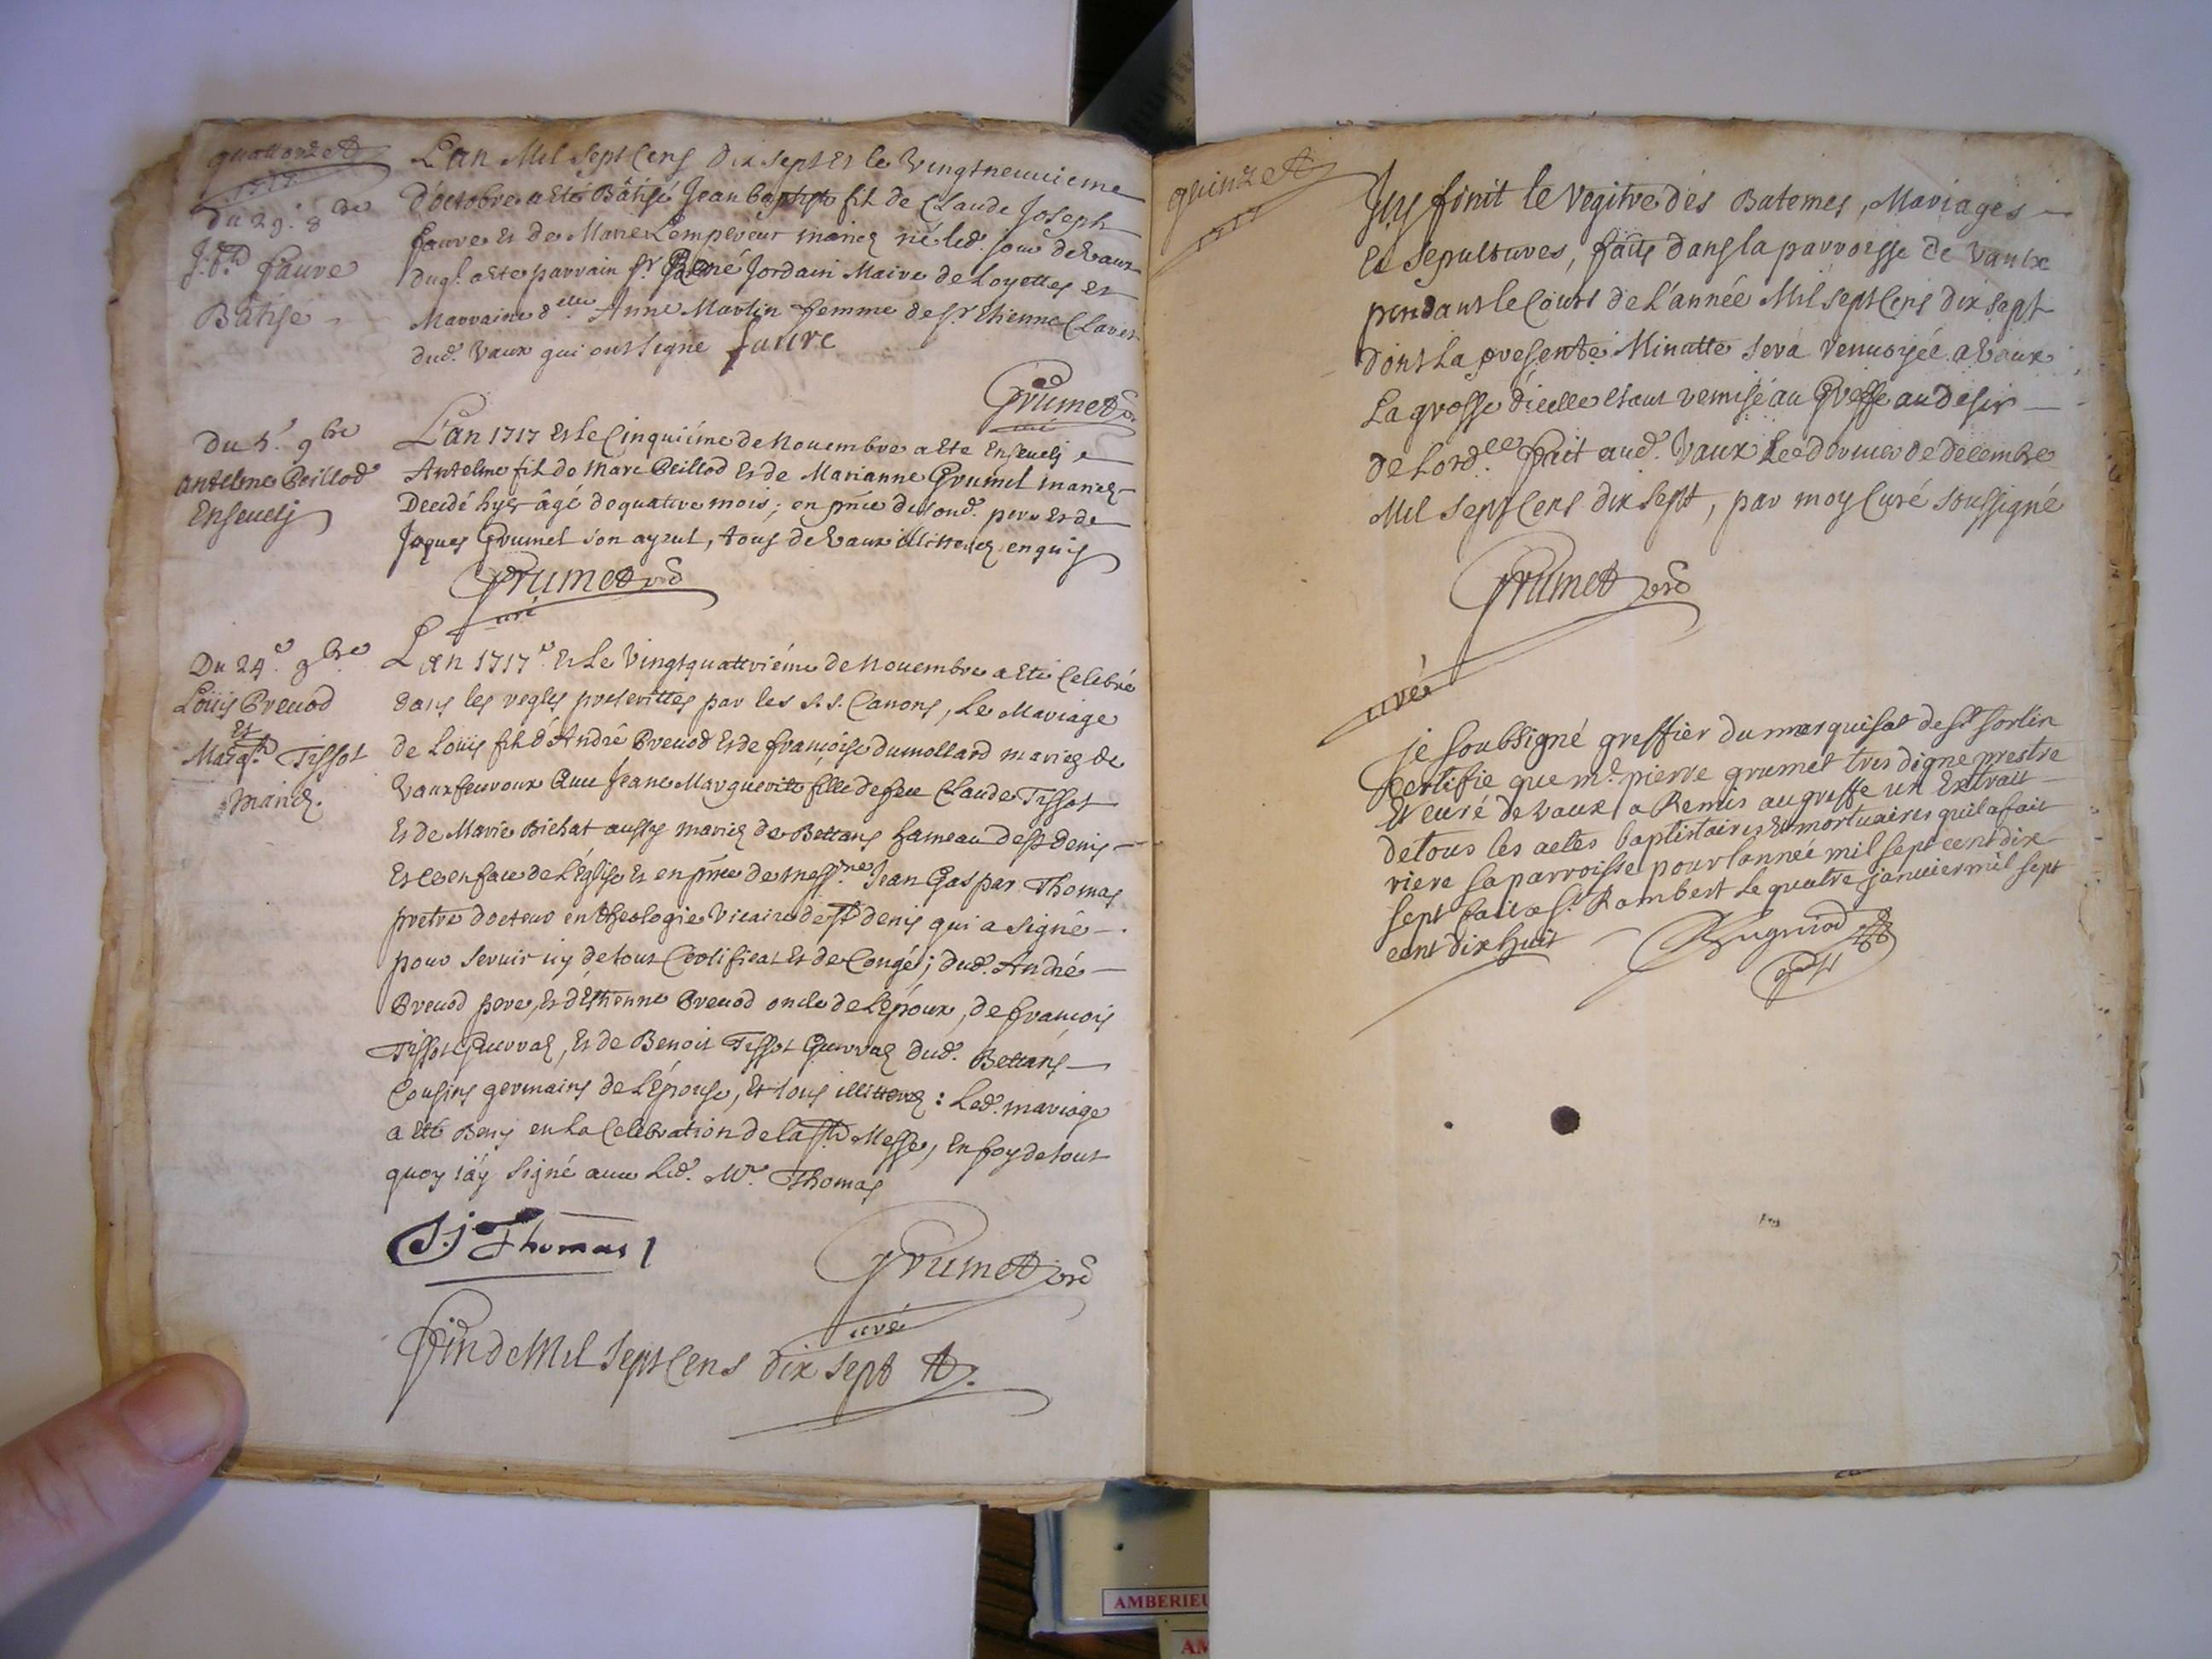 quattorze
1717
Du 29.e 8bre
J. Bte faure
Bâtisé
L'an Mil Sept Cens dix sept Et le Vingtneuvieme
d'octobre a êté Bâtisé Jean baptiste fil de Claude Joseph
faure et de Marie Lempereur mariez né led. jour de Vaux
duql. a été parrain sr. René Jordain Maire de Loyettes et
Marraine d.elle Anne Martin femme de sr. Etienne Claret
dud. Vaux qui ont signé fauvre
Grumet
curé
Du 5.e 9bre
Antelme Peillod
Enseueli
L'an 1717 Et le Cinquiéme de Nouembre a Eté Enseueli
Antelme fil de Marc Peillod Et de Marianne Grumel mariez
Decédé hyer âgé de quatre mois; en pñce de sond. pere Et de
Jaques Grumel son ayeul, tous de Vaux illitterez enquis
Grumet
curé
Du 24.e 9bre
Loüis Preuod
Et
Margte. Tissot
mariez.
Lan 1717.e Et Le Vingtquattriéme de Nouembre a Eté Celebré
dans les regles prescrittes par les S.S. Canons, Le Mariage
de Loüis fil d'André Preuod Et de françoise dumollard mariez de
Vauxfeuroux Auec Jeane Marguerite fille de feu Claude Tissot
Et de Marie Bichat aussy mariez de Bettans hameau de st denis
Et ce en face de L'église Et en pñce de messire Jean Gaspar Thomas
pretre docteur en theologie Vicaire de st denis qui a signé
pour seruir icy de tout Certificat Et de Congé; dud. André
Preuod pere, Et d'Ethienne Preuod oncle de L'époux, de françois
Tissot Guerraz, Et de Benoit Tissot Guerraz dud. Bettans
Cousins germains de L'épouse, Et tous illitterez: Led. mariage
a été Beny en La Celebration de la ste Messe, En foy de tout
quoy i'ay signé auec Led. Mr. Thomas
J. j. Thomas
Grumet
curé
Fin de Mil Sept Cens dix sept
quinze
1717
Icy finit le regitre des Batemes, Mariages
Et Sepultures, faits dans la parroisse de Vaulx
pendant le Cours de L'année Mil Sept Cens dix sept
dont La presente Minutte sera renuoyée a Vaux
La grosse d'icelle etant remise au Greffe au desir
de Lord.ce Fait aud. Vaux Le dernier de decembre
Mil Sept Cens dix sept, par moy Curé soussigné
Grumet
curé
je soubsigné greffier du marquisat de st sorlin
certifie que mr. pierre grumet tres digne prestre
Et curé de vaux a Remis au greffe un Extrait
de tous les actes baptistaires Et mortuaires quil a fait
riere sa parroisse pour lannée mil sept cent dix
sept fait a st. Rambert le quatre januier mil sept
cent dix huit